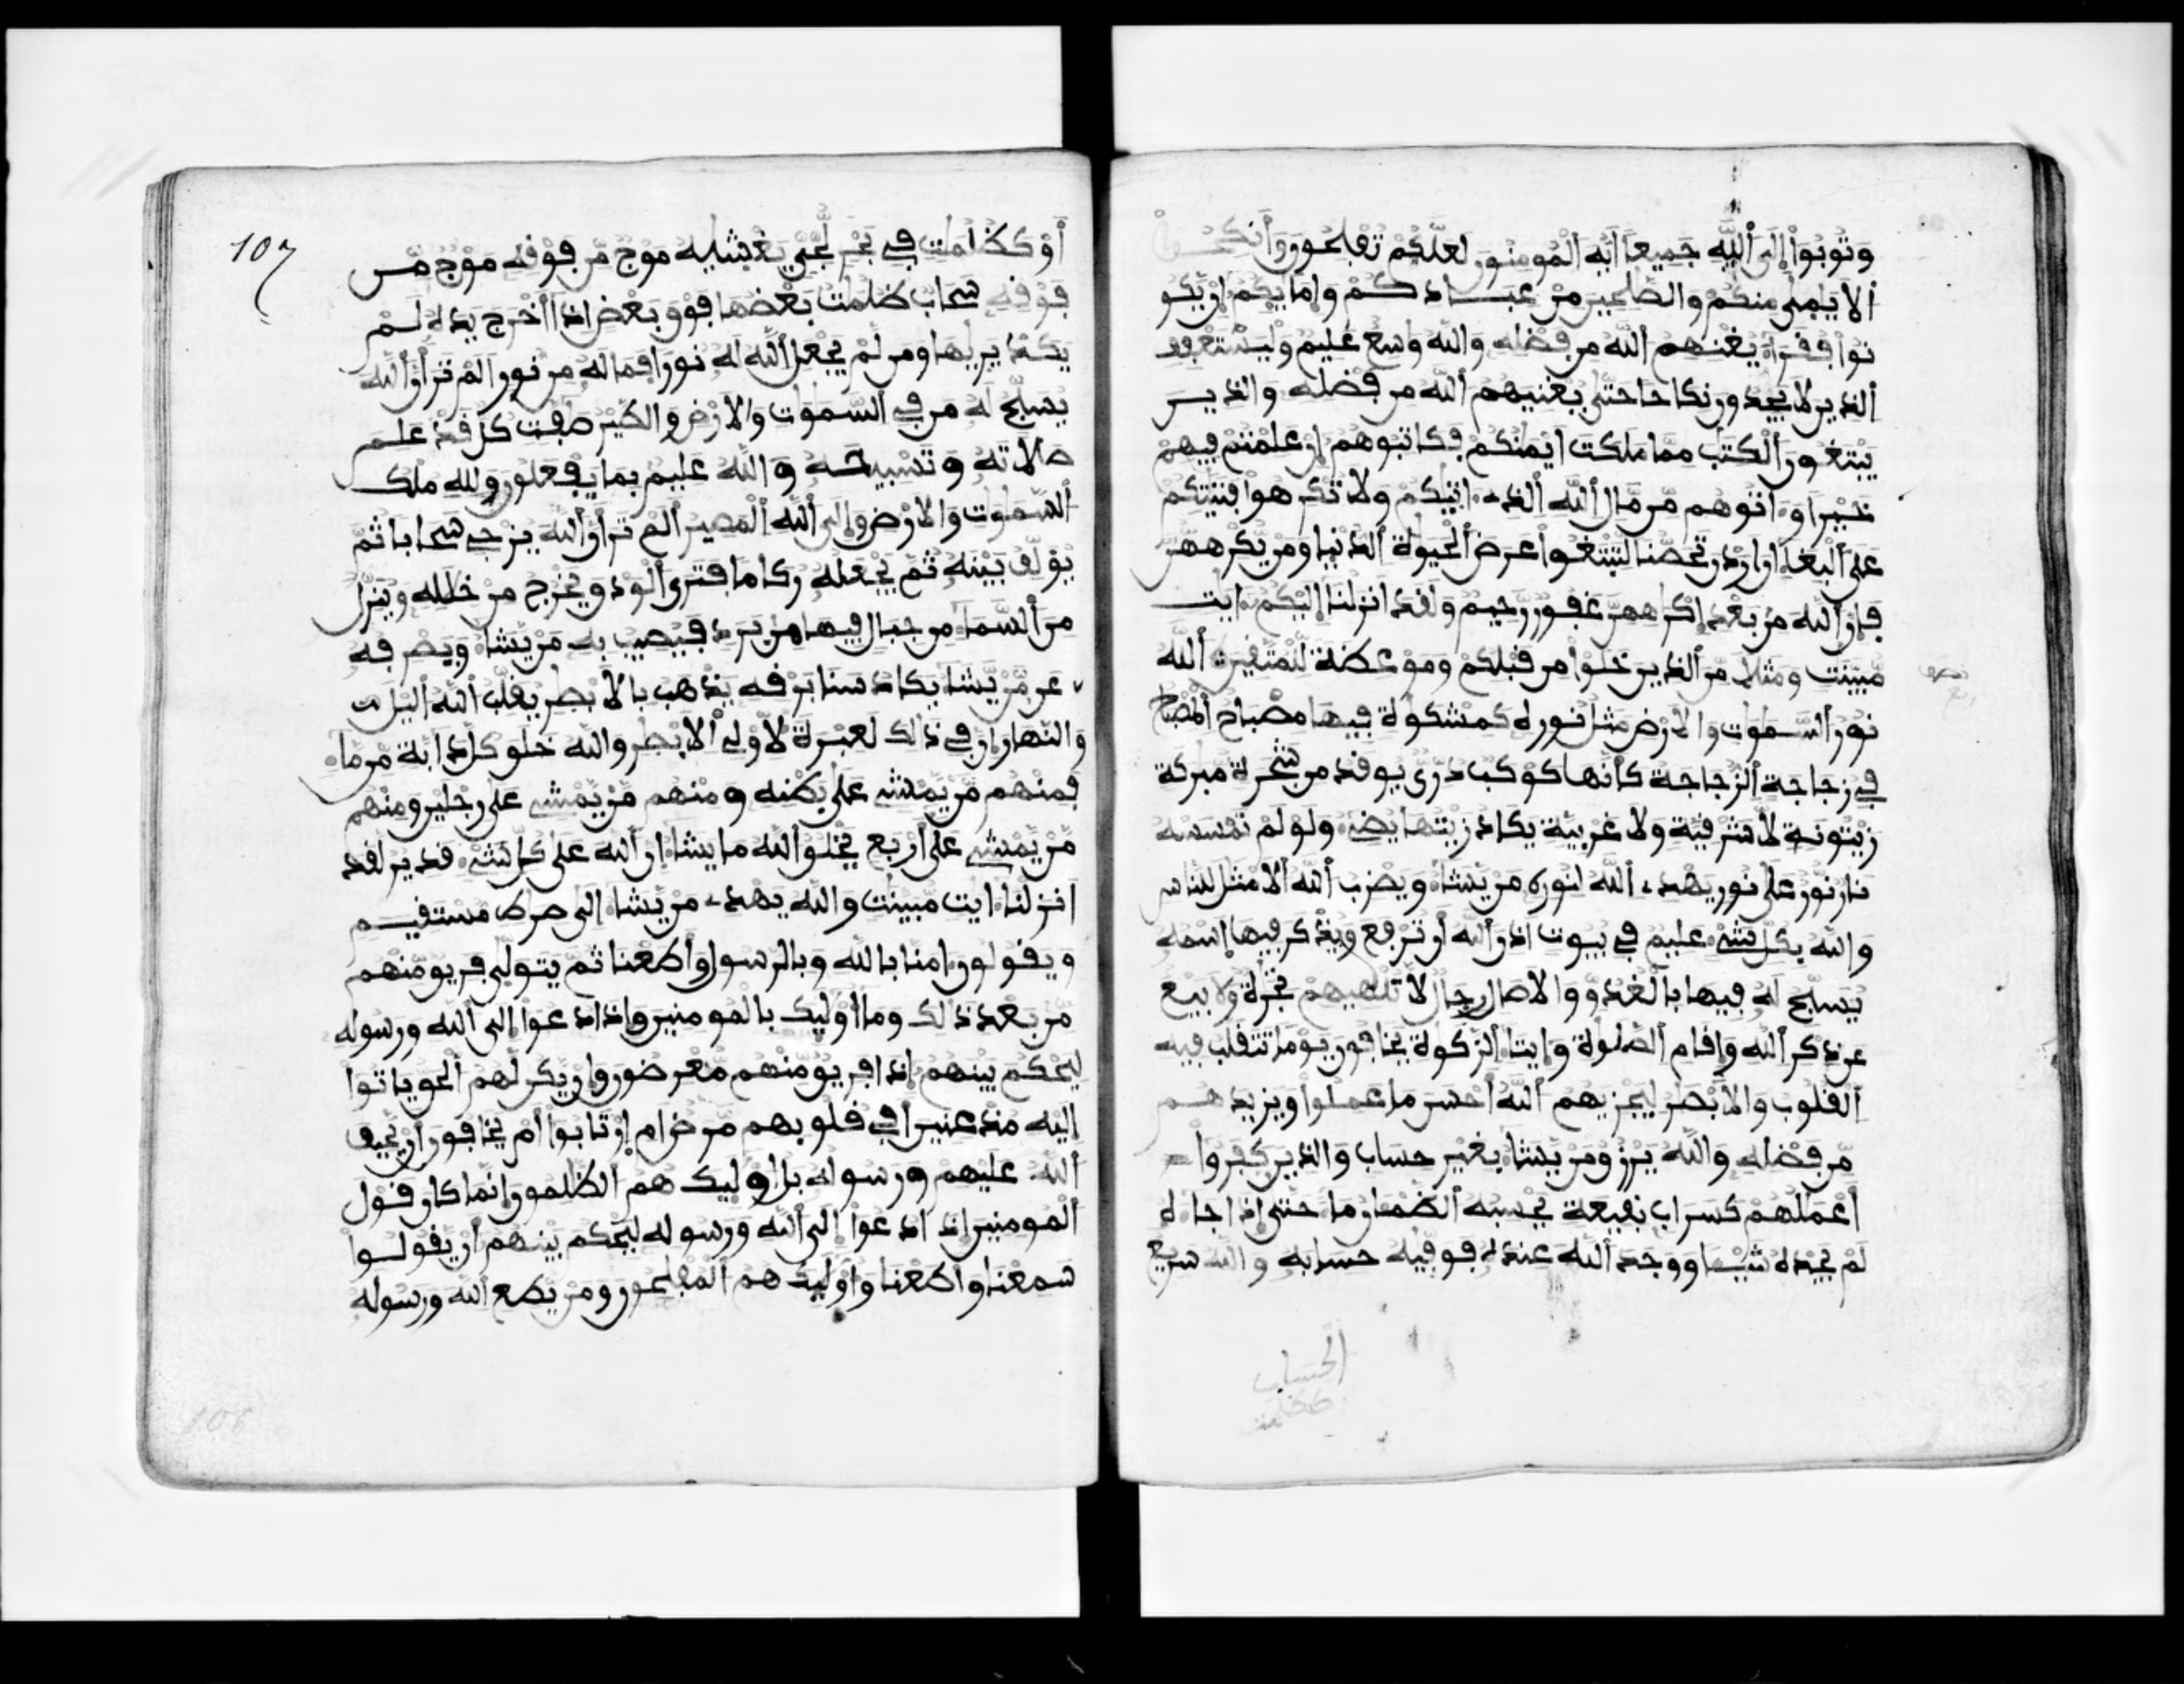 وتوبوا إلى الله جميعا أيه المومنون لعلكم تفلحون وأنكحوا
الايمى منكم والصلحين من عبادكم وإمايكم إن يكو
نوا فقراء يغنهم الله من فضله والله واسع عليم وليستعفف
الذين لا يجدون نكاحا حتى يغنيهم الله من فضله والذين
يبتغون الكتب مما ملكت أيمنكم فكاتبوهم إن علمتم فيهم
خيرا وءاتوهم من مال الله الذي ءاتيكم ولا تكرهوا فتيتكم
على البغاء ان اردن تحصنا لتبتغوا عرض الحيوة الدنيا ومن يكرههن
فإن الله من بعد إكراههن غفور رحيم ولقد انزلنا إليكم ءايت
مبينت ومثلا من الذين خلوا من قبلكم وموعظة للمتقين الله
نور السموت والارض مثل نوره كمشكوة فيها مصباح المصباح
في زجاجة الزجاجة كأنها كوكب دري يوقد من شجرة مبركة
زيتونة لا شرقية ولا غربية يكاد زيتها يضيء ولو لم تمسسه
نار نور على نور يهدي الله لنوره من يشاء ويضرب الله الامثل للناس
والله بكل شيء عليم في بيوت اذن الله أن ترفع ويذكر فيها اسمه
يسبح له فيها بالغدو والاصال رجال لا تلهيهم تجرة ولا بيع
عن ذكر الله وإقام الصلوة وإيتاء الزكوة يخافون يوما تتقلب فيه
القلوب والابصر ليجزيهم الله أحسن ما عملوا ويزيدهم
من فضله والله يرزق من يشاء بغير حساب والذين كفروا
أعملهم كسراب بقيعة يحسبه الظمان ماء حتى إذا جاءه
لم يجده شيئا ووجد الله عنده فوفيه حسابه والله سريع
الحساب
كظلمت
107
أو كظلمت في بحر لجي يغشيه موج من فوقه موج من
فوقه سحاب ظلمت بعضها فوق بعض اذا أخرج يده لم
يكد يريها ومن لم يجعل الله له نورا فما له من نور الم تر أن الله
يسبح له من في السموت والارض والطير صفت كل قد علم
صلاته وتسبيحه والله عليم بما يفعلون ولله ملك
السموت والارض وإلى الله المصير الم تر أن الله يزجي سحابا ثم
يولف بينه ثم يجعله ركاما فترى الودق يخرج من خلله وينزل
من السماء من جبال فيها من برد فيصيب به من يشاء ويصرفه
عن من يشاء يكاد سنا برقه يذهب بالابصر يقلب الله اليل
والنهار إن في ذالك لعبرة لأولي الابصر والله خلق كل دابة من ماء
فمنهم من يمشي على بطنه ومنهم من يمشي على رجلين ومنهم
من يمشي على أربع يخلق الله ما يشاء ان الله على كل شيء قدير لقد
أنزلنا ءايت مبينت والله يهدي من يشاء إلى صرط مستقيم
ويقولون ءامنا بالله وبالرسول وأطعنا ثم يتولى فريق منهم
من بعد ذلك وما أوليك بالمومنين وإذا دعوا إلى الله ورسوله
ليحكم بينهم إذا فريق منهم معرضون وإن يكن لهم الحق ياتوا
إليه مذعنين أفي قلوبهم مرض ام إرتابوا أم يخافون أن يحيف
الله عليهم ورسوله بل اوليك هم الظلمون إنما كان قول
المومنين إذا دعوا إلى الله ورسوله ليحكم بينهم أن يقولوا
سمعنا وأطعنا وأوليك هم المفلحون ومن يطع الله ورسوله
106